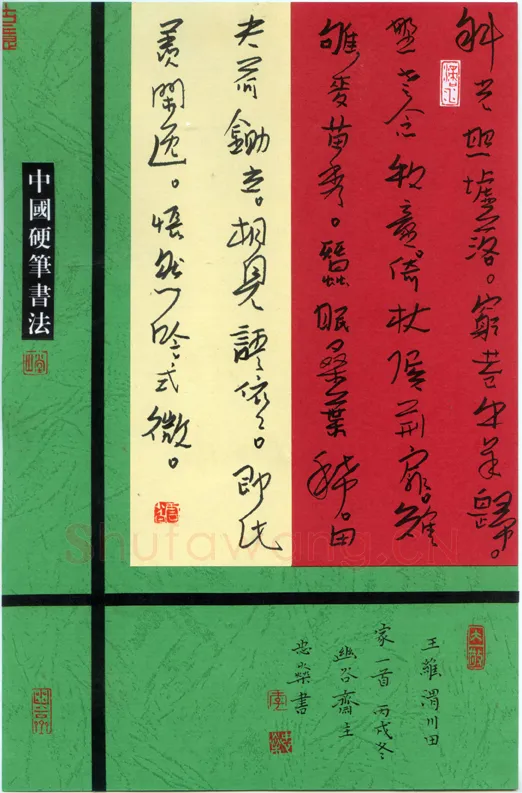 斜光照墟落。窮巷牛羊歸。
野老念牧童。倚杖候荊扉。雉
雊麥苗秀。蠶眠桑葉稀。田
夫荷鋤至。相見語依依。即此
羨閒逸。悵然吟式微。
中國硬筆書法
王維渭川田
家一首 丙戌冬
幽谷齋主
書
Shufawang.cn